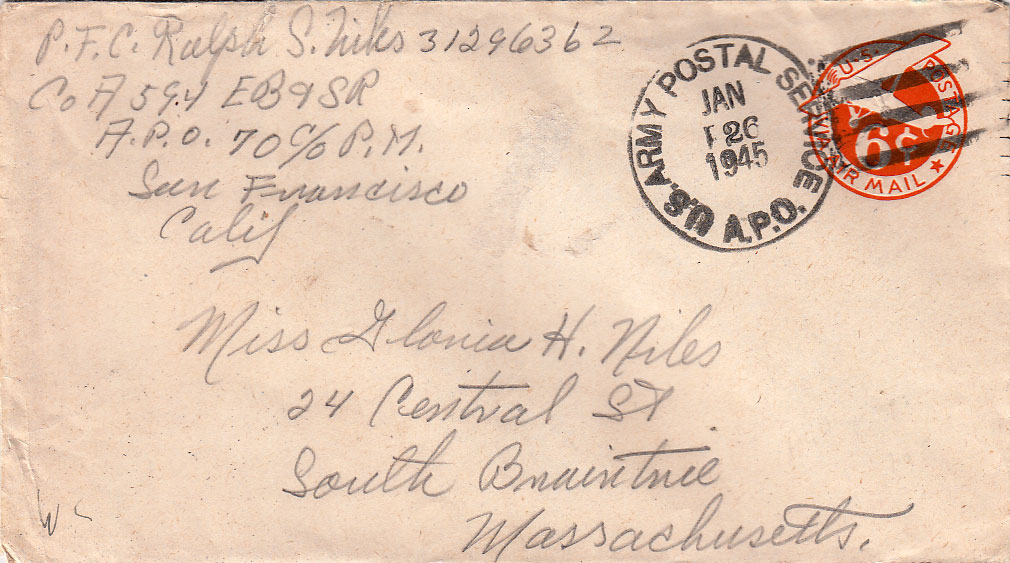 P.F.C. Ralph S. Niles 31296362
Co A 594 EB & SR
A.P.O. 70 C/o P.M.
San Francisco
Calif
U.S. ARMY POSTAL SERVICE
A.P.O.
JAN
26
1945
U.S. POSTAGE
6¢
VIA AIR MAIL
Miss Gloria H. Niles
24 Central St
South Braintree
Massachusetts.